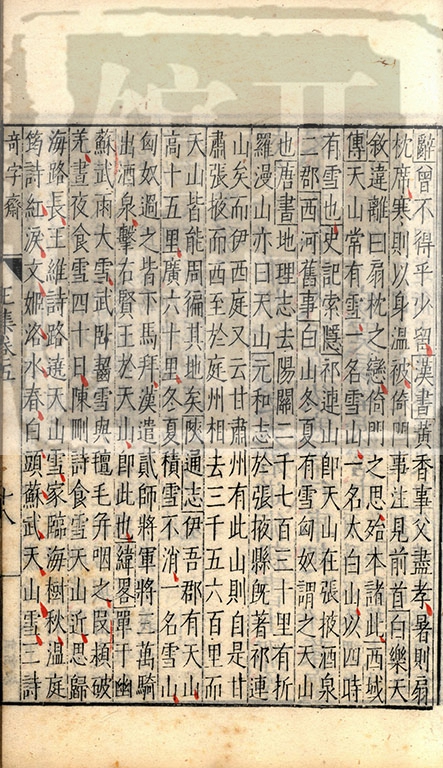 辭曾不得乎少留漢書黃香事父盡孝暑則扇
枕席寒則以身溫被倚門事注見前首白樂天
敘違離曰扇枕之戀倚門之思殆本諸此西域
傳天山常有雪一名雪山一名大白山以四時
有雪也史記索隱祁連山即天山在張掖酒泉
二郡西河舊事白山冬夏有雪匈奴謂之天山
也唐書地理志去陽關二千七百三十里有折
羅漫山亦曰天山元和志於張掖縣既著祁連
山矣而伊西庭又云甘肅州有此山則自是甘
肅張掖而西至於庭州相去三千五六百里而
天山皆能周徧其地矣陜通志伊吾郡有天山
高十五里廣六十里冬夏積雪不消一名雪山
匈奴過之皆下馬拜漢遣貳師將軍將三萬騎
出酒泉擊右賢王於天山即此也緯畧單于幽
蘇武雨大雪武臥齧雪與氊毛并咽之庾頠破
羌晝夜食雪四十日陳剛詩食雪天山近思歸
海路長王維詩路遶天山雪家臨海樹秋溫庭
筠詩紅淚文姬洛水春白頭蘇武天山雪三詩
奇字齋
五
十八